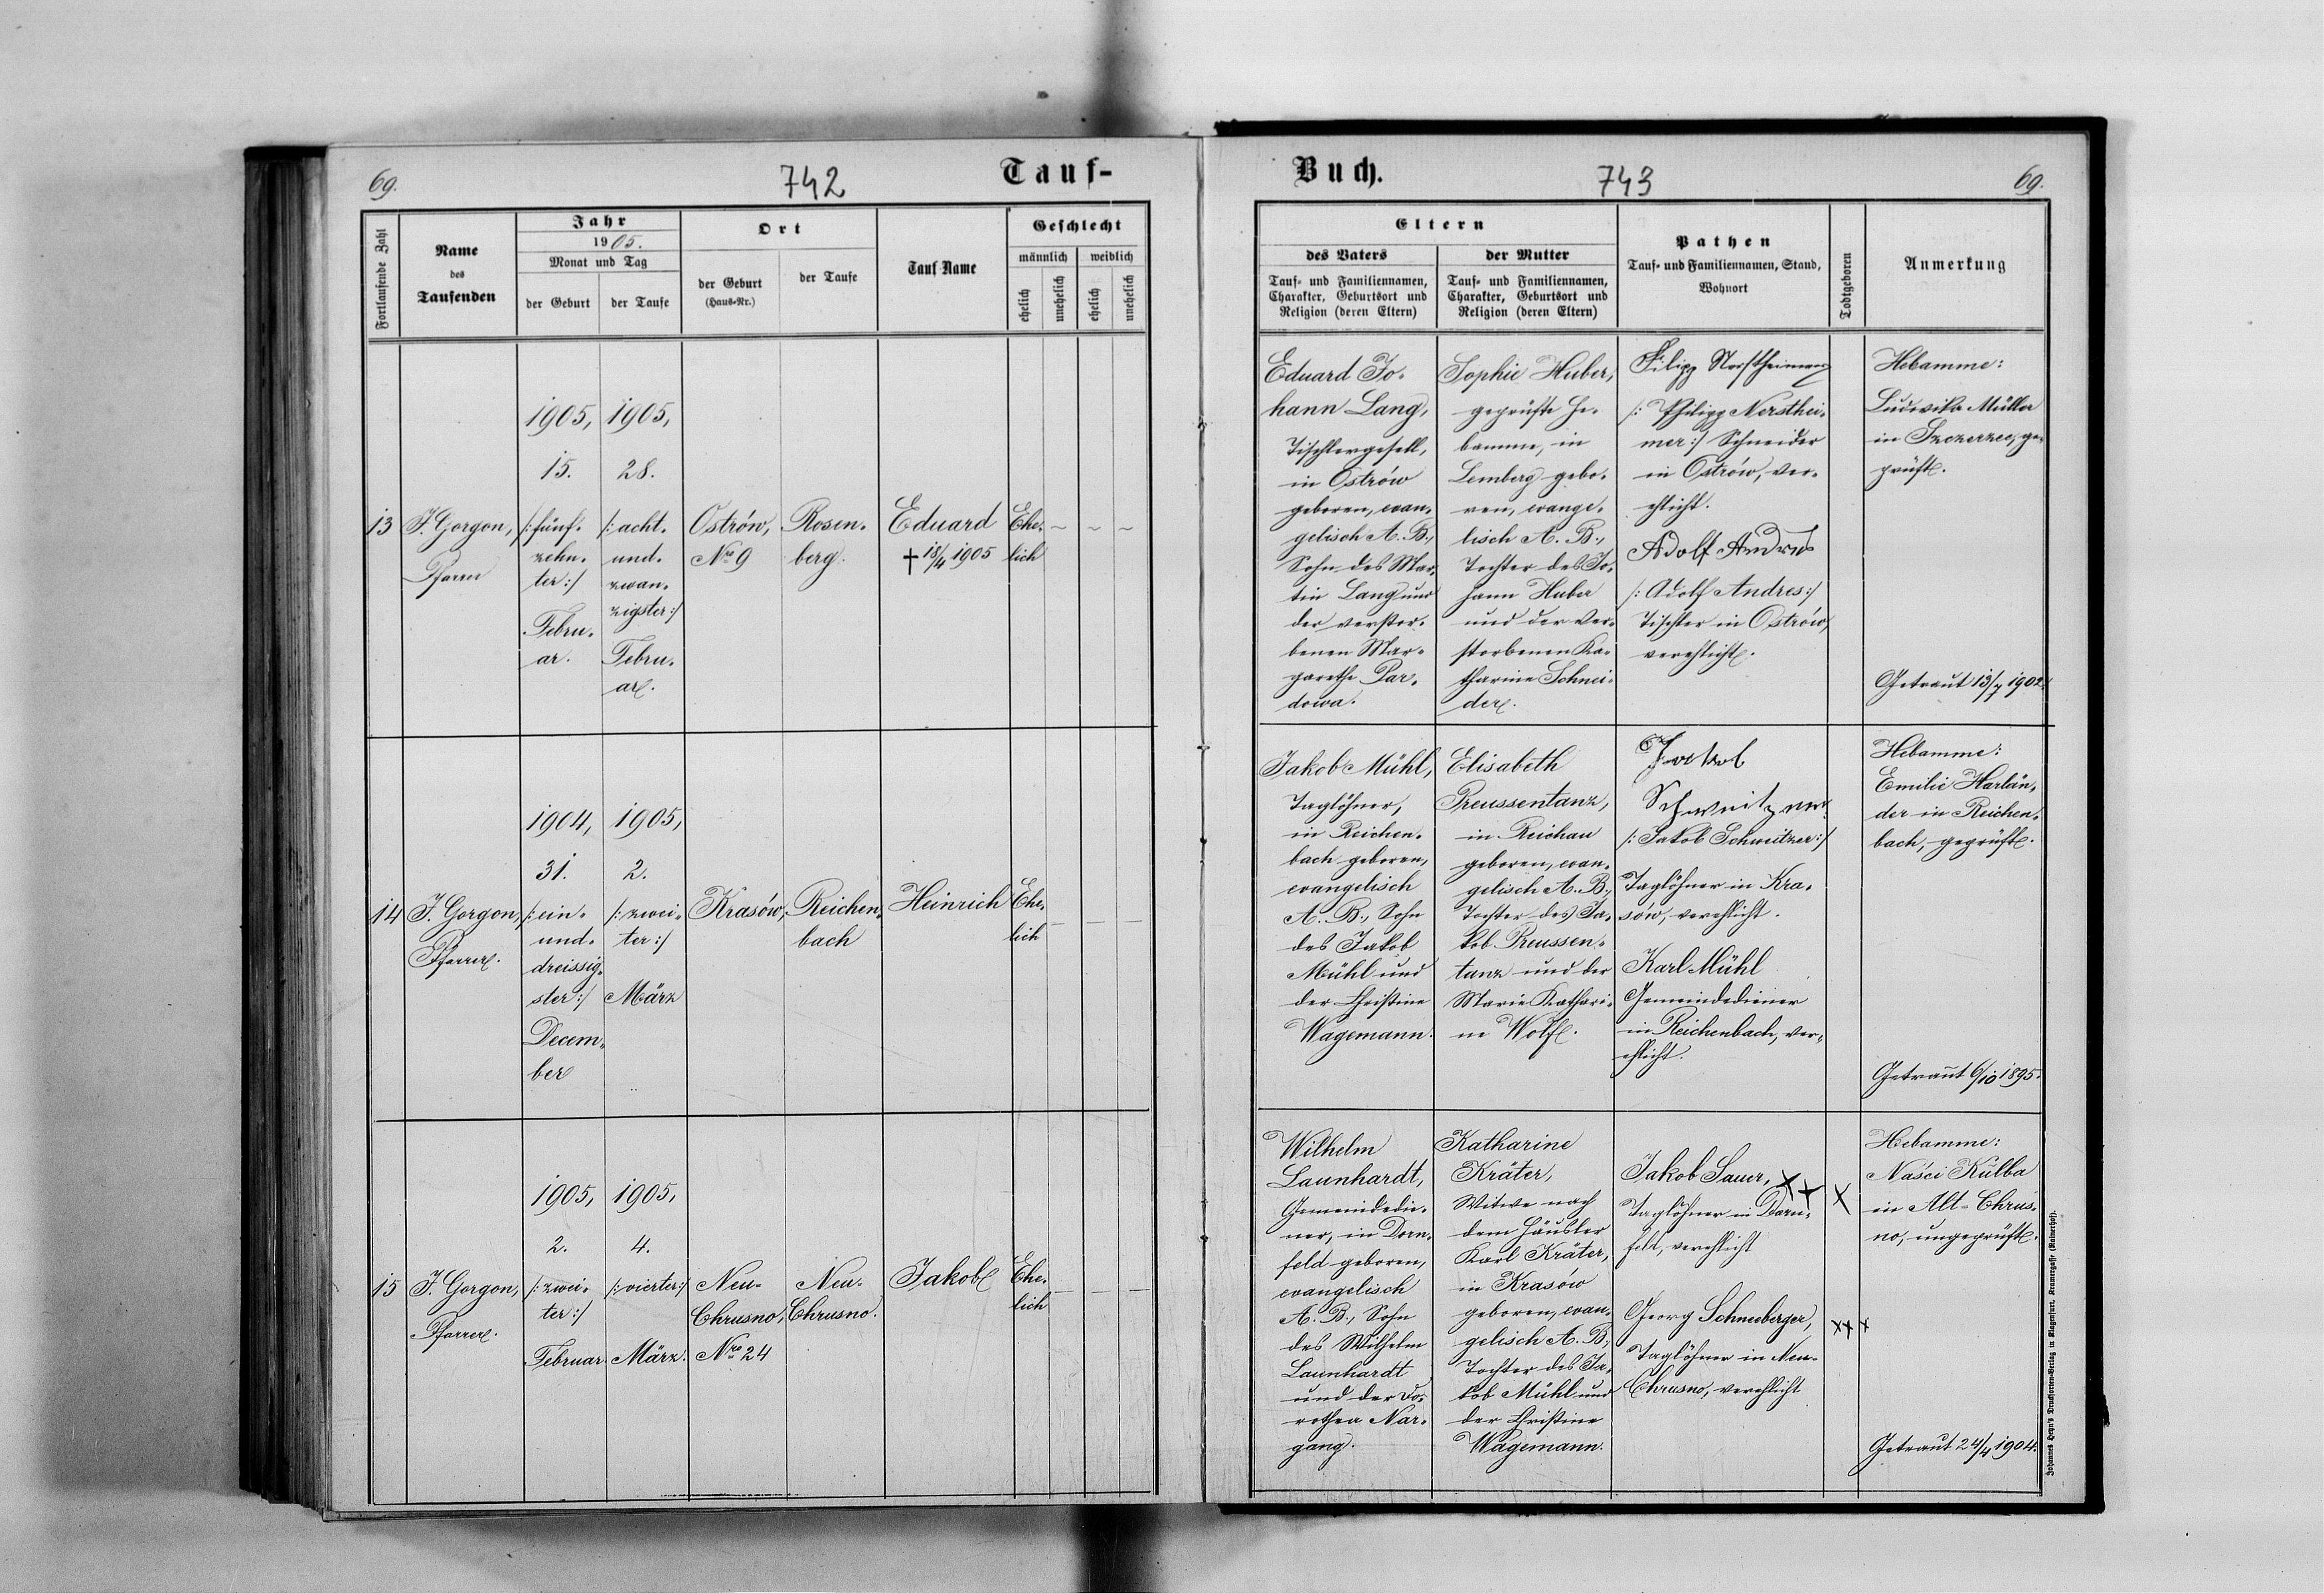 69.
742
Tauf-
Fortlaufende Zahl
Name
des
Taufenden
Jahr
1905.
Monat und Tag
der Geburt
der Taufe
Ort
der Geburt
(Haus-Nr.)
der Taufe
Tauf-Name
Geschlecht
männlich
weiblich
ehelich
unehelich
ehelich
unehelich
13
J. Gorgon,
Pfarrer
1905,
15.
/:fünf-
zehn-
ter:/
Febru-
ar.
1905,
28.
/:acht-
und-
zwan-
zigster:/
Febru-
ar.
Ostrów,
Nro 9
Rosen-
berg.
Eduard
† 18/4 1905
Ehe-
lich
14
J. Gorgon,
Pfarrer.
1904,
31.
/:ein-
und-
dreissig-
ster:/
Decem-
ber
1905,
2.
/:zwei-
ter:/
März
Krasów,
Reichen-
bach
Heinrich
Ehe-
lich
15
J. Gorgon,
Pfarrer.
1905,
2.
/:zwei-
ter:/
Februar.
1905,
4.
/:vierter:/
März.
Neu-
Chrusno,
Nro 24
Neu-
Chrusno.
Jakob
Ehe-
lich
Buch.
743
69.
Eltern
des Vaters
Tauf- und Familiennamen,
Charakter, Geburtsort und
Religion (deren Eltern)
der Mutter
Tauf- und Familiennamen,
Charakter, Geburtsort und
Religion (deren Eltern)
Pathen
Tauf- und Familiennamen, Stand,
Wohnort
Todtgeboren
Anmerkung
Eduard Jo-
hann Lang,
Tischlergesell,
in Ostrów
geboren, evan-
gelisch A. B.,
Sohn des Mar-
tin Lang und
der verstor-
benen Mar-
garethe Par-
dowa.
Sophie Huber,
geprüfte He-
bamme, in
Lemberg gebo-
ren, evange-
lisch A. B.,
Tochter des Jo-
hann Huber
und der ver-
storbenen Ka-
tharine Schnei-
der.
Filipp
/: Philipp Nersthei-
mer:/ Schneider
in Ostrów, ver-
ehlicht.
Adolf Andres
/: Adolf Andres:/
Tischler in Ostrów,
verehlicht.
Hebamme:
Ludwika Müller
in Szczerzec, ge-
prüft.
Getraut 13/7 1902.
Jakob Mühl,
Taglöhner,
in Reichen-
bach geboren,
evangelisch
A. B., Sohn
des Jakob
Mühl und
der Christine
Wagemann.
Elisabeth
Preussentanz,
in Reichau
geboren, evan-
gelisch A. B.,
Tochter des Ja-
kob Preussen-
tanz und der
Marie Kathari-
ne Wolf.
Jakob
Schweitzer
/: Jakob Schweitzer:/
Taglöhner in Kra-
sów, verehlicht.
Karl Mühl
Gemeindediener
in Reichenbach, ver-
ehlicht.
Hebamme:
Emilie Harlän-
der in Reichen-
bach, geprüft.
Getraut 6/10 1895.
Wilhelm
Launhardt,
Gemeindedie-
ner, in Dorn-
feld geboren,
evangelisch
A. B., Sohn
des Wilhelm
Launhardt
und der Do-
rothea Nar-
gang.
Katharine
Kräter,
Witwe nach
dem Häusler
Karl Kräter,
in Krasów
geboren, evan-
gelisch A. B.,
Tochter des Ja-
kob Mühl und
der Christine
Wagemann.
Jakob Sauer, XX X
Taglöhner in Dorn-
feld, verehlicht
Georg Schneeberger, XX X
Taglöhner in Neu-
Chrusno, verehlicht
Hebamme:
Naści Kulba
in Alt-Chrus-
no, ungeprüft.
Getraut 24/4 1904.
Johannes Heyn's Drucksorten-Verlag in Klagenfurt, Kramergasse (Rainerhof).